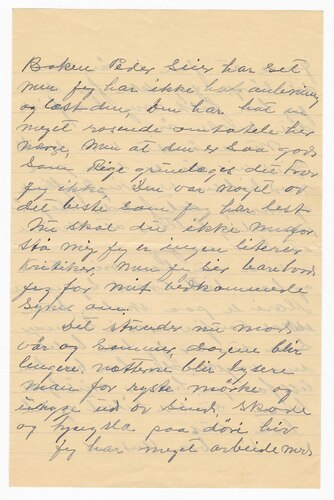 Boken Peder Seier har set
men jeg har ikke hat anledning
og læst den, Den har hat en
meget rosende omtale her
norje, Men at den er saa god
Som Rige grundlæges det tror
jeg ikke. Den var noget av
det beste Som jeg har lest
Nu skal du ikke misfor
stå mig, jeg er ingen literær
kritiker, Men jeg Sier bare hvad
jeg for mit vedkommende
Synes om.
Det stunder nu mod
vår og Sommer, dagene blir
lengere. nætterne blir lysere
man før ryste mørke og
uhyge ud av Sind.
og paa
jeg har meget arbeide med